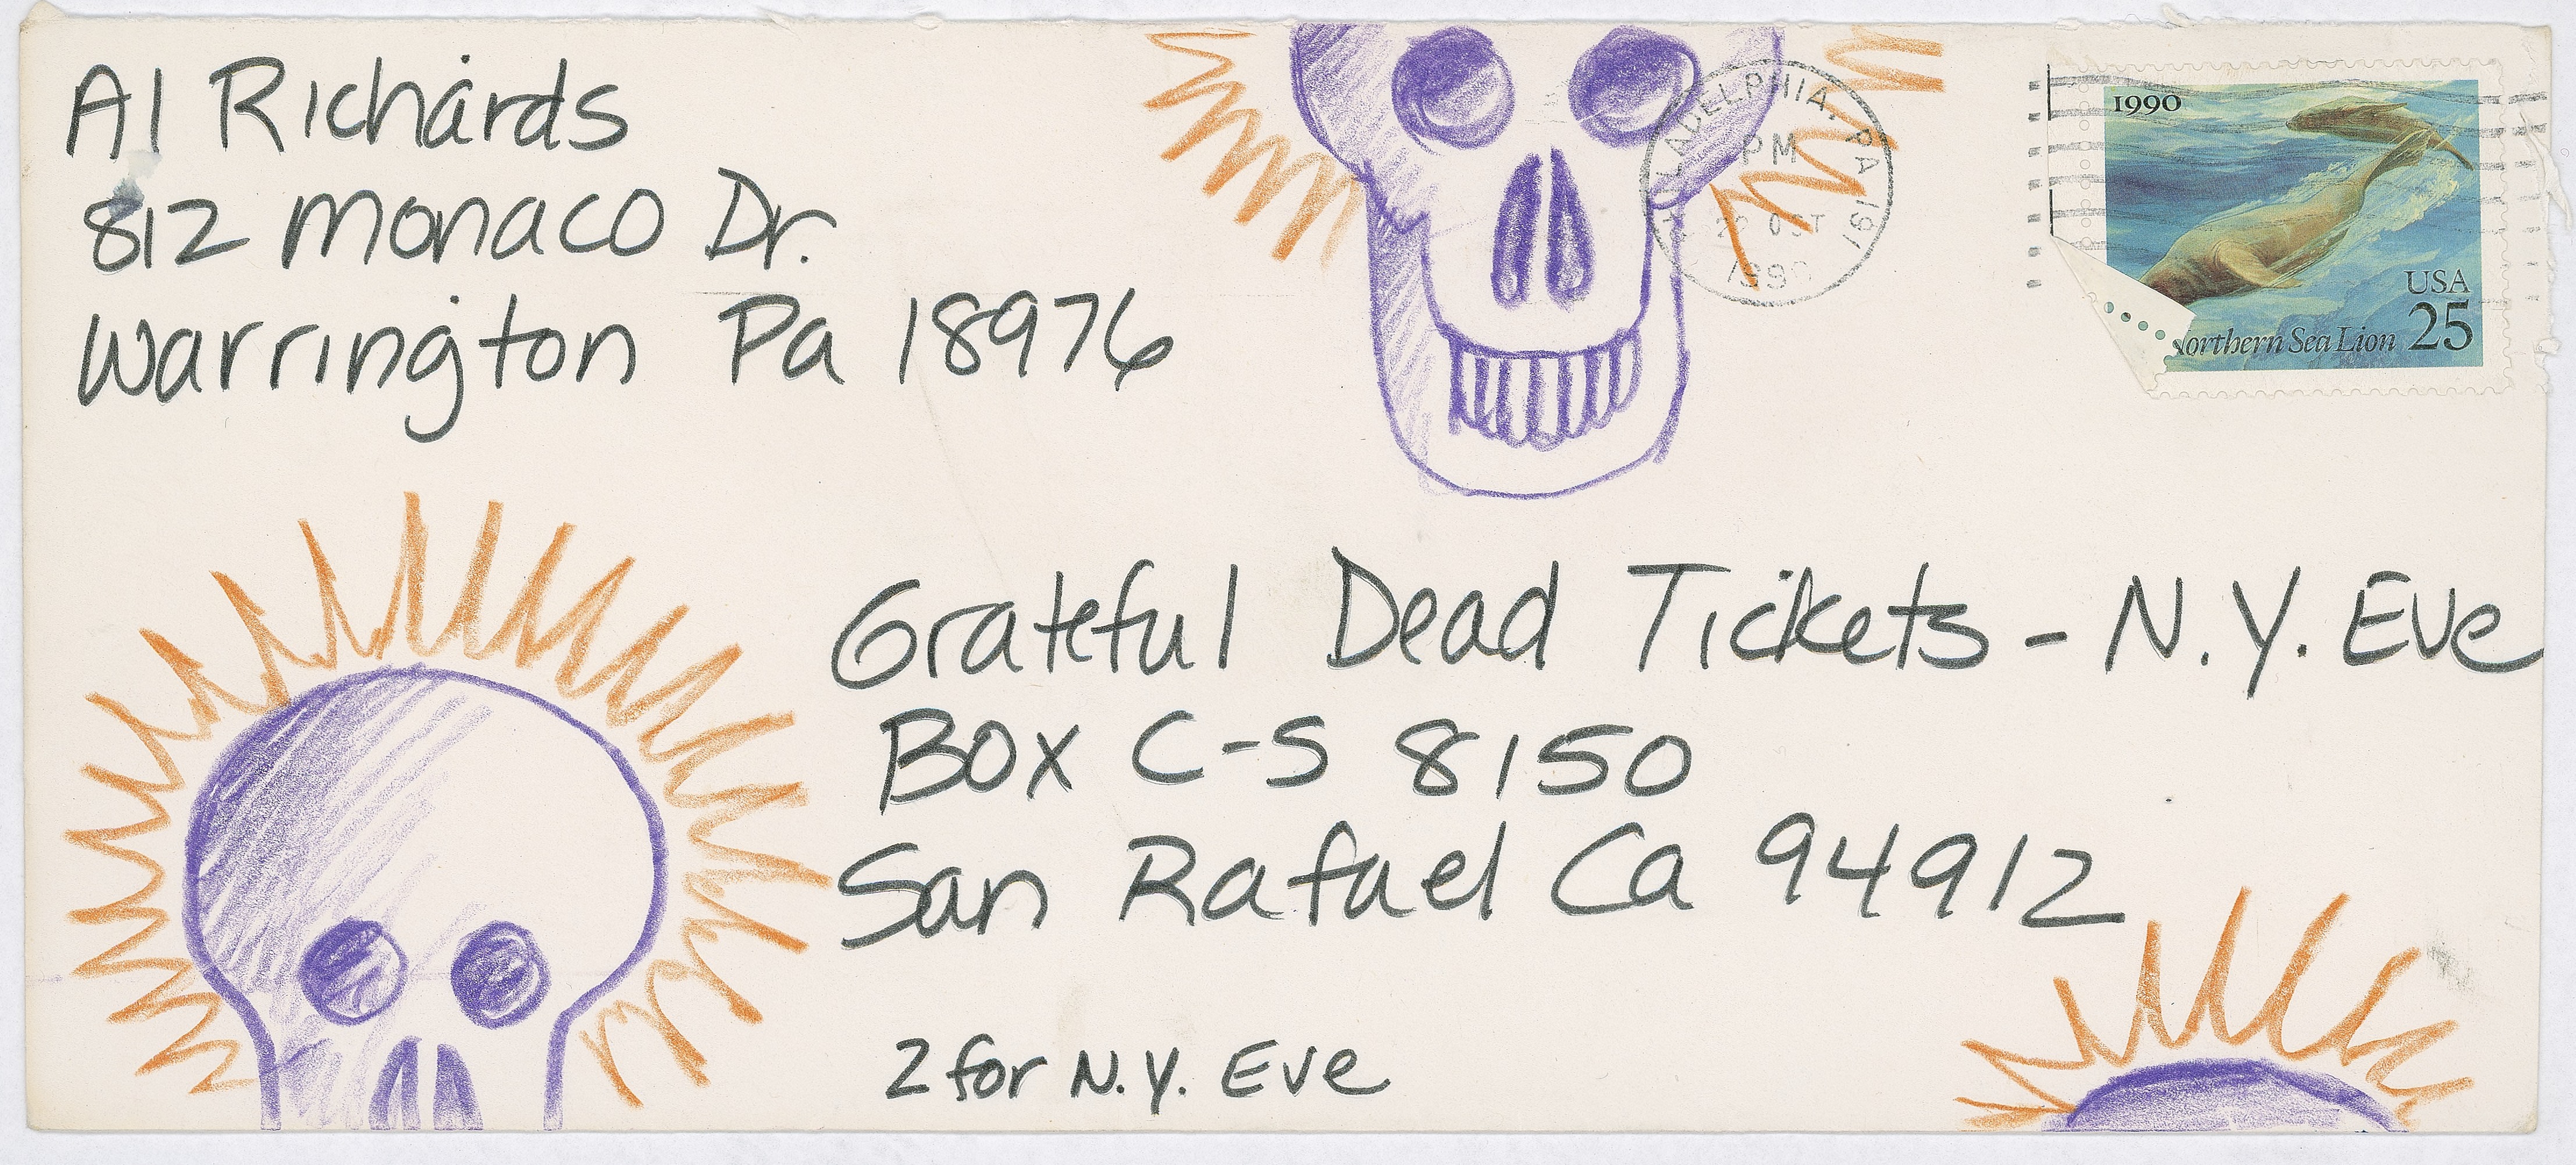 Al Richards
812 Monaco Dr.
Warrington Pa 18976
PHILADELPHIA, PA 191
PM
OCT
1990
1990
USA
25
Northern Sea Lion
Grateful Dead Tickets - N.Y. Eve
Box C-S 8150
San Rafael Ca 94912
2 for N.Y. Eve